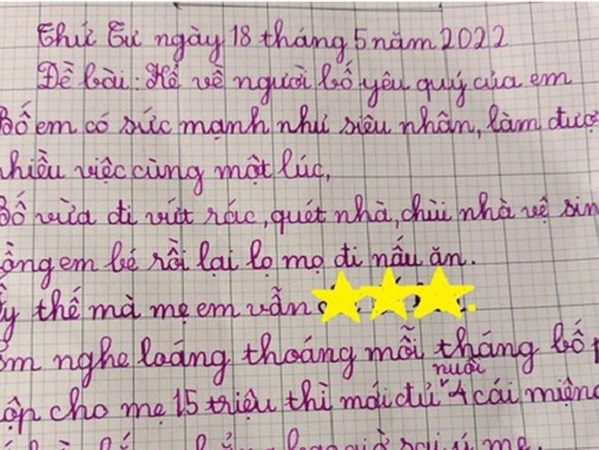 Thứ Tư ngày 18 tháng 5 năm 2022
Đề bài: Kể về người bố yêu quý của em
Bố em có sức mạnh như siêu nhân, làm đượ
nhiều việc cùng một lúc,
Bố vừa đi vứt rác, quét nhà, chùi nhà vệ sin
ẵng em bé rồi lại lọ mọ đi nấu ăn.
ấy thế mà mẹ em vẫn
em nghe loáng thoáng mỗi tháng bố p
nuôi
ộp cho mẹ 15 triệu thì mới đủ 4 cái miệng
mẹ.